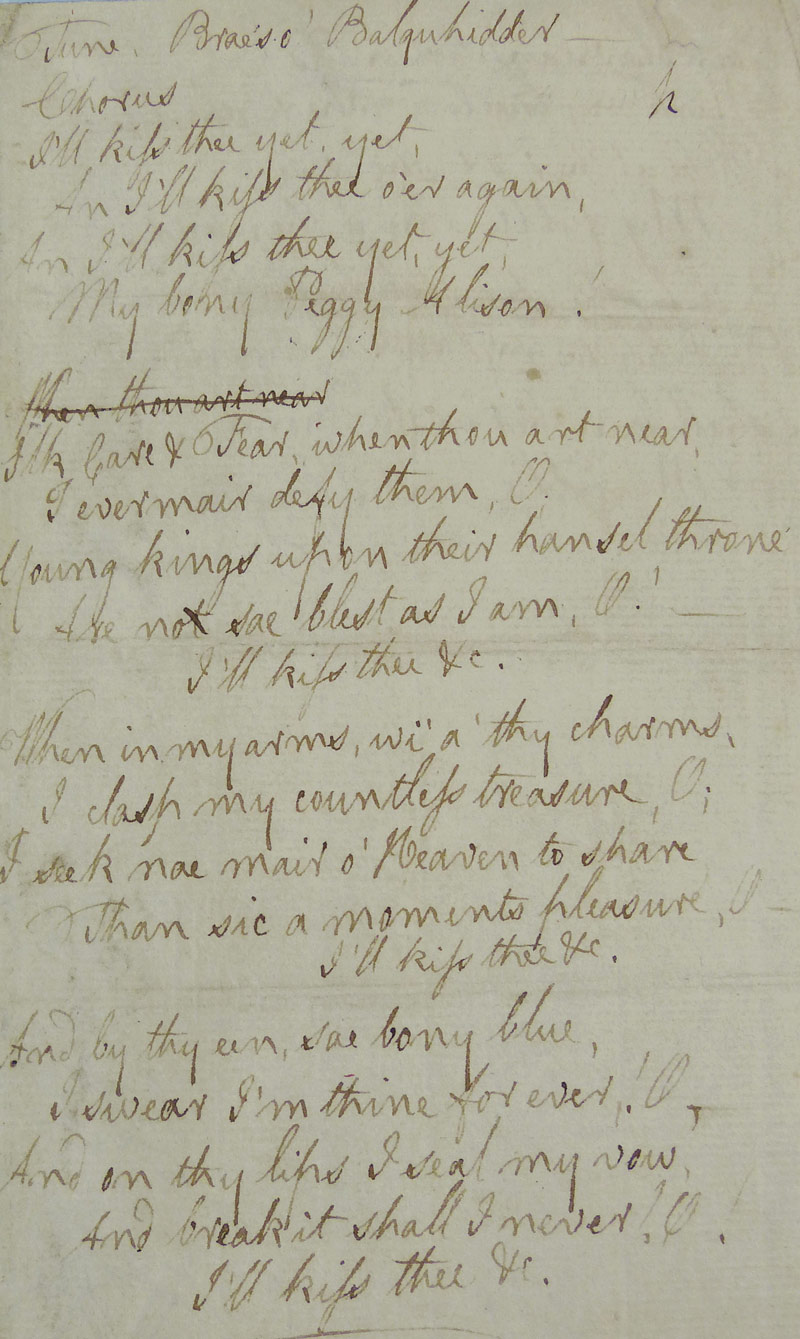 Tune. Braes o' Balquhidder —
Chorus
I'll kiſs thee yet, yet,
An I'll kiſs thee o'er again,
An I'll kiſs thee yet, yet,
My bony Peggy Alison!
When thou art near
Ilk Care & Fear, when thou art near,
I evermair defy them, O.
Young kings upon their hansel throne
Are not sae blest as I am, O! —
I'll kiſs thee &c.
When in my arms, wi' a' thy charms,
I clasp my countleſs treasure, O;
I seek nae mair o' Heaven to share
Than sic a moments pleasure, O —
I'll kiſs thee &c.
And by thy een, sae bony blue,
I swear I'm thine for ever,! O,
And on thy lips I seal my vow,
And break it shall I never! O!
I'll kiſs thee &c.